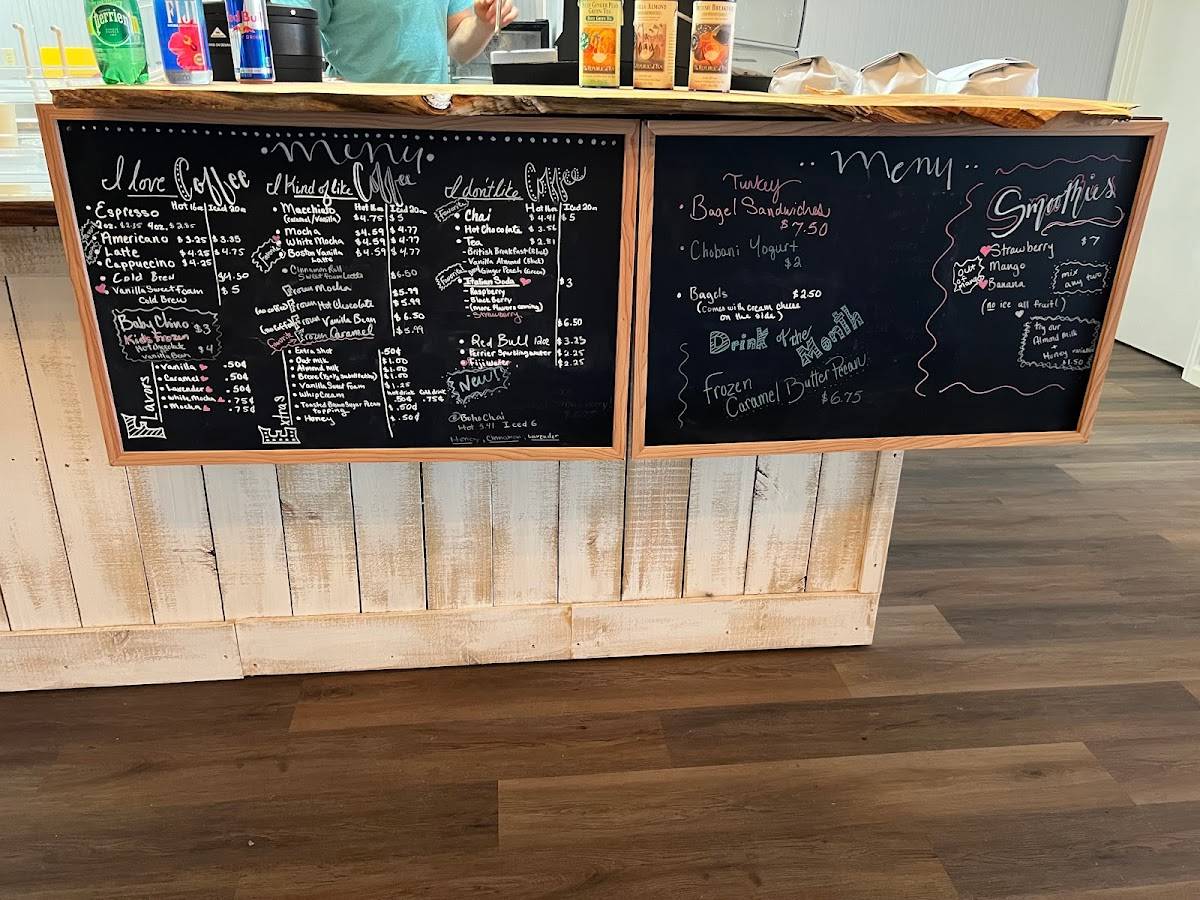 Perrier
FIJI
Red Bull
Menu
I love Coffee
Hot 16oz Iced 20oz
• Espresso
2oz. $2.35 4oz. $2.95
Americano $3.25 $3.35
• Latte $4.25 $4.75
• Cappuccino $4.25
• Cold Brew $4.50
Vanilla Sweet Foam $5
Cold Brew
Baby Chino $3
Kid's Frozen
Hot Chocolate $4
Vanilla Bean
Flavors
• Vanilla .50¢
• Caramel .50¢
• Lavender .50¢
• White Mocha .75¢
• Mocha .75¢
I Kind of like Coffee
Hot 16oz Iced 20oz
• Macchiato $4.75 $5
(Caramel/Vanilla)
• Mocha $4.59 $4.77
• White Mocha $4.59 $4.77
• Boston Vanilla $4.59 $4.77
Latte
• Cinnamon Roll
Sweet Foam Latte $6.50
Frozen Mocha $5.99
(no Coffee) Frozen Hot Chocolate $5.99
(no Coffee) Frozen Vanilla Bean $6.50
Favorite Frozen Caramel $5.99
Extras
• Extra shot .50¢
• Oat milk $1.00
• Almond Milk $1.00
• Breve $1.00
• Vanilla Sweet Foam $1.25
• Whip Cream hot drink .50¢ Cold drink .75¢
• Toasted Brown Sugar Pecan
topping .50¢
• Honey .50¢
I don't like Coffee
Hot 16oz Iced 20oz
Favorite
• Chai $4.41 $5
• Hot Chocolate $3.56
• Tea $2.81
- British Breakfast (Black)
- Vanilla Almond (Black)
- Ginger Peach (Green)
Favorite
• Italian Soda $3
- Raspberry
- Black Berry
- (more flavors coming)
- Strawberry
$6.50
• Red Bull 12oz $3.25
• Perrier Sparkling water $2.25
• Fiji water $2.25
New!!
@Boho Chai
Hot 5.41 Iced 6
Honey, Cinnamon, Lavender
Menu
Turkey
• Bagel Sandwiches
$7.50
• Chobani Yogurt
$2
• Bagels $2.50
(comes with cream cheese
on the side)
Drink of the Month
Frozen
Caramel Butter Pecan
$6.75
Smoothies
$7
Strawberry
Mango
Banana
out of mango
mix
any two
(no ice all fruit!)
try our
Almond Milk
+
Honey variation
$1.50